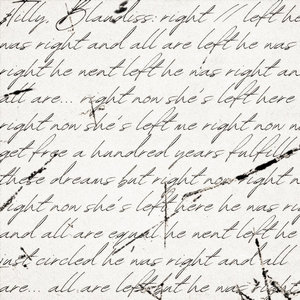 Tilly, Blandiss. right // left he
was right and all are left he was
right he went left he was right an
all are... right now she's left here
right now she's left me right now n
get free a hundred years fulfill
these dreams but right now right n
right now she's left here he was ri
and all are equal he went left he
just circled he was right and all
are... all are left but he was right